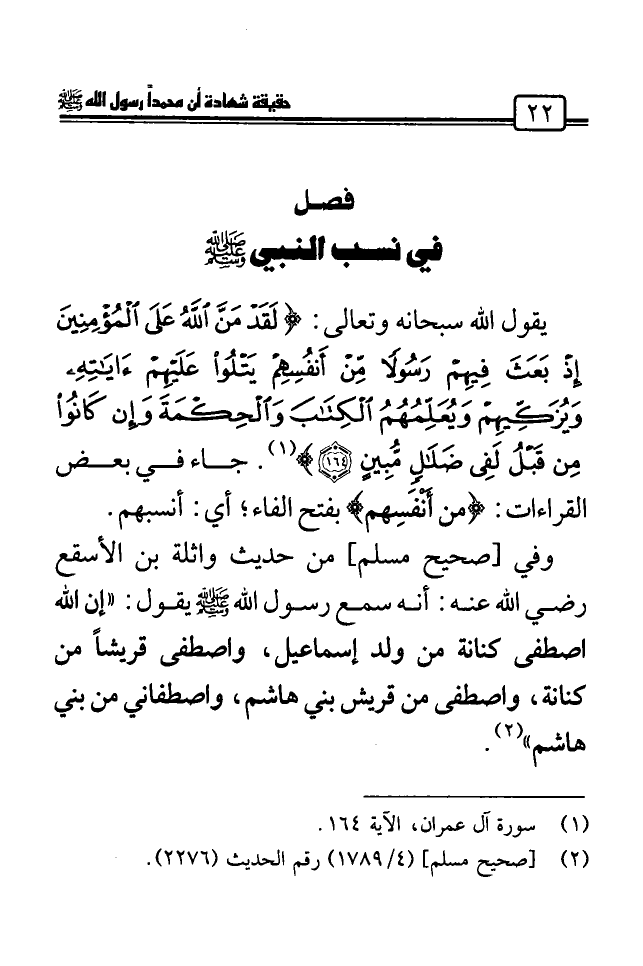 ٢٢
حقيقة شهادة أن محمداً رسول الله ﷺ
فصل
في نسب النبي ﷺ
يقول الله سبحانه وتعالى: ﴿ لَقَدْ مَنَّ ٱللَّهُ عَلَى ٱلْمُؤْمِنِينَ
إِذْ بَعَثَ فِيهِمْ رَسُولًا مِّنْ أَنفُسِهِمْ يَتْلُوا۟ عَلَيْهِمْ ءَايَٰتِهِۦ
وَيُزَكِّيهِمْ وَيُعَلِّمُهُمُ ٱلْكِتَٰبَ وَٱلْحِكْمَةَ وَإِن كَانُوا۟
مِن قَبْلُ لَفِى ضَلَٰلٍ مُّبِينٍ ١٦٤ ﴾(١). جاء في بعض
القراءات: ﴿من أَنْفَسِهم﴾ بفتح الفاء؛ أي: أنسبهم.
وفي [صحيح مسلم] من حديث واثلة بن الأسقع
رضي الله عنه: أنه سمع رسول الله ﷺ يقول: «إن الله
اصطفى كنانة من ولد إسماعيل، واصطفى قريشاً من
كنانة، واصطفى من قريش بني هاشم، واصطفاني من بني
هاشم»(٢).
(١) سورة آل عمران، الآية ١٦٤.
(٢) [صحيح مسلم] (٤/ ١٧٨٩) رقم الحديث (٢٢٧٦).